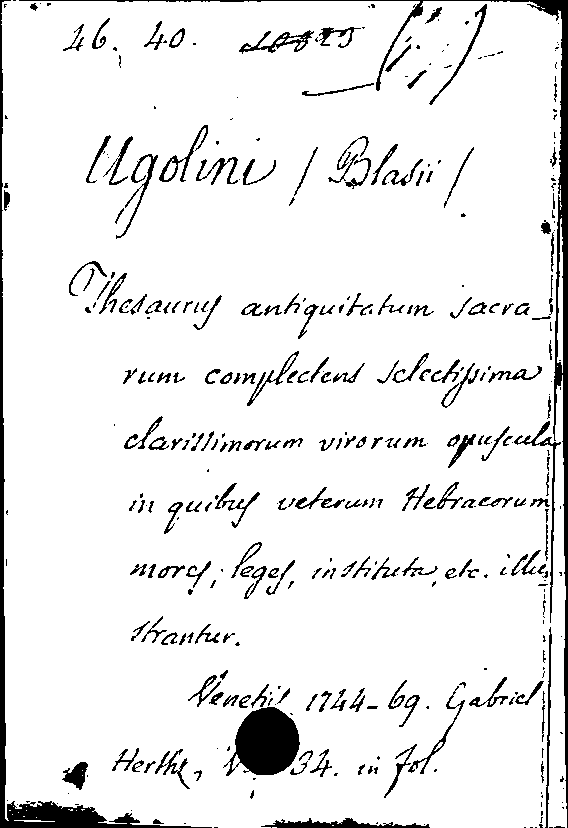 46. 40. 10823
Ugolini / Blasii /
Thesaurus antiquitatum sacra_
rum complectens selectissima
clarissimorum virorum opuscula
in quibus veterum Hebraeorum
mores, leges, instituta, etc. illu_
strantur.
Venetiis 1744-69. Gabriel
Herthz, V. 34. in fol.